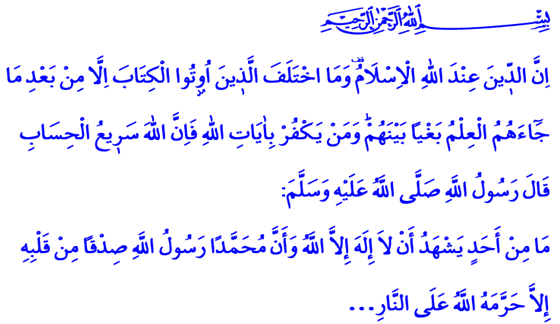 بِسْمِ اللهِ الرَّحْمٰنِ الرَّحِيمِ
اِنَّ الدّ۪ينَ عِنْدَ اللّٰهِ الْاِسْلَامُ۠ وَمَا اخْتَلَفَ الَّذ۪ينَ اُو۫تُوا الْكِتَابَ اِلَّا مِنْ بَعْدِ مَا
جَٓاءَهُمُ الْعِلْمُ بَغْيًا بَيْنَهُمْۜ وَمَنْ يَكْفُرْ بِاٰيَاتِ اللّٰهِ فَاِنَّ اللّٰهَ سَر۪يعُ الْحِسَابِ
قَالَ رَسُولُ اللَّهِ صَلَّى اللَّهُ عَلَيْهِ وَسَلَّمَ:
مَا مِنْ أَحَدٍ يَشْهَدُ أَنْ لاَ إِلَهَ إِلاَّ اللَّهُ وَأَنَّ مُحَمَّدًا رَسُولُ اللَّهِ صِدْقًا مِنْ قَلْبِهِ
إِلاَّ حَرَّمَهُ اللَّهُ عَلَى النَّارِ...